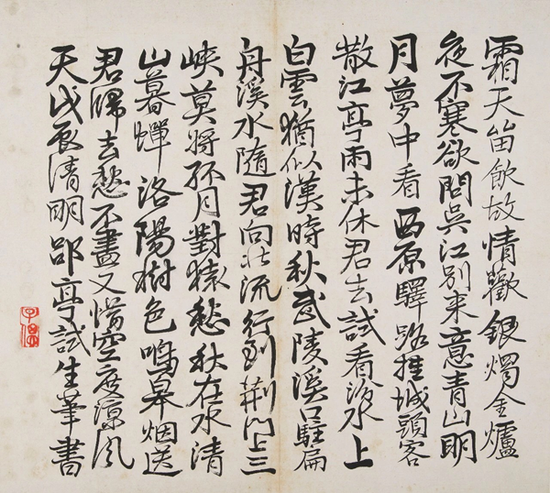 霜天留飲故情歡銀燭金爐
夜不寒欲問吳江別來意青山明
月夢中看西原驛路挂城頭客
散江亭雨未休君去試看汾水上
白雲猶似漢時秋武陵溪口駐扁
舟溪水隨君向北流行到荊門上三
峽莫將孤月對猿愁秋在水清
山暮蟬洛陽樹色鳴皋烟送
君歸去愁不盡又惜空度涼風
天戊辰清明郘亭試生筆書
子偲